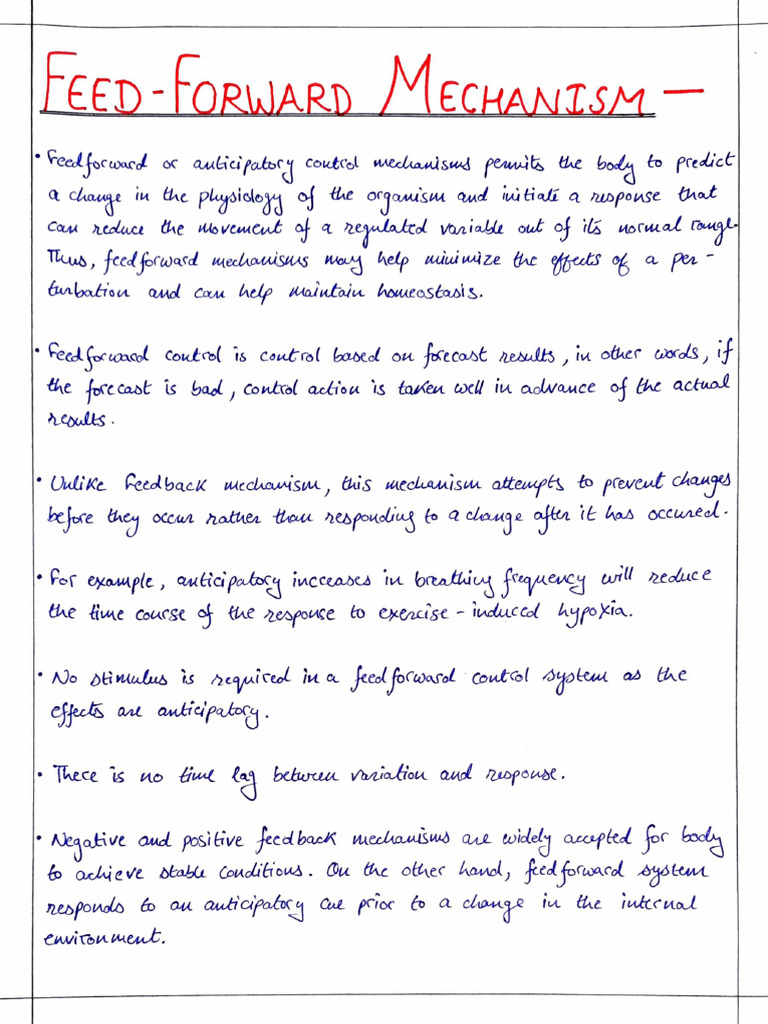 FEED-FORWARD MECHANISM —
• Feedforward or anticipatory control mechanisms permits the body to predict
a change in the physiology of the organism and initiate a response that
can reduce the movement of a regulated variable out of its normal range.
Thus, feedforward mechanisms may help minimize the effects of a per-
turbation and can help maintain homeostasis.
• Feedforward control is control based on forecast results, in other words, if
the forecast is bad, control action is taken well in advance of the actual
results.
• Unlike Feedback mechanism, this mechanism attempts to prevent changes
before they occur rather than responding to a change after it has occured.
• For example, anticipatory increases in breathing frequency will reduce
the time course of the response to exercise-induced hypoxia.
• No stimulus is required in a feedforward control system as the
effects are anticipatory.
• There is no time lag between variation and response.
• Negative and positive feedback mechanisms are widely accepted for body
to achieve stable conditions. On the other hand, feedforward system
responds to an anticipatory cue prior to a change in the internal
environment.